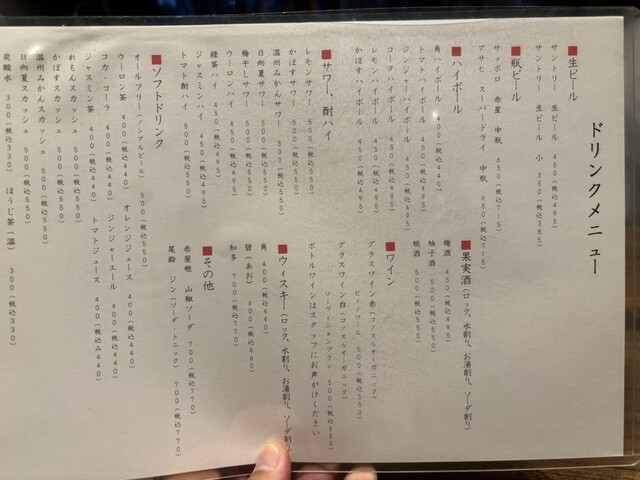 ドリンクメニュー
■生ビール
サントリー 生ビール 450(税込495)
サントリー 生ビール 小 350(税込385)
■瓶ビール
サッポロ 赤星 中瓶 650(税込715)
アサヒ スーパードライ 中瓶 650(税込715)
■ハイボール
角ハイボール 400(税込440)
トマトハイボール 450(税込495)
ジンジャーハイボール 450(税込495)
コークハイボール 450(税込495)
レモンハイボール 450(税込495)
かぼすハイボール 450(税込495)
■サワー、酎ハイ
レモンサワー 500(税込550)
かぼすサワー 500(税込550)
温州みかんサワー 500(税込550)
日向夏サワー 500(税込550)
梅干しサワー 500(税込550)
ウーロンハイ 450(税込495)
緑茶ハイ 450(税込495)
ジャスミンハイ 450(税込495)
トマト酎ハイ 500(税込550)
■ソフトドリンク
オールフリー(ノンアルビール) 500(税込550)
ウーロン茶 400(税込440)
コカ・コーラ 400(税込440)
ジャスミン茶 400(税込440)
れもんスカッシュ 500(税込550)
かぼすスカッシュ 500(税込550)
温州みかんスカッシュ 500(税込550)
日向夏スカッシュ 500(税込550)
炭酸水 300(税込330)
オレンジジュース 400(税込440)
ジンジャーエール 400(税込440)
トマトジュース 400(税込み440)
ほうじ茶(温) 300(税込330)
■果実酒(ロック、水割り、お湯割り、ソーダ割り)
梅酒 450(税込495)
柚子酒 500(税込550)
桃酒 500(税込550)
■ワイン
グラスワイン赤(コノスルオーガニック)
ピノノワール 500(税込550)
グラスワイン白(コノスルオーガニック)
ソーヴィニョンブラン 500(税込550)
ボトルワインはスタッフにお声がけください
■ウィスキー(ロック、水割り、お湯割り、ソーダ割り)
角 400(税込440)
碧(あお) 600(税込660)
知多 700(税込770)
■その他
赤屋根 山椒ソーダ 700(税込770)
尾鈴 ジン(ソーダ・トニック) 700(税込770)